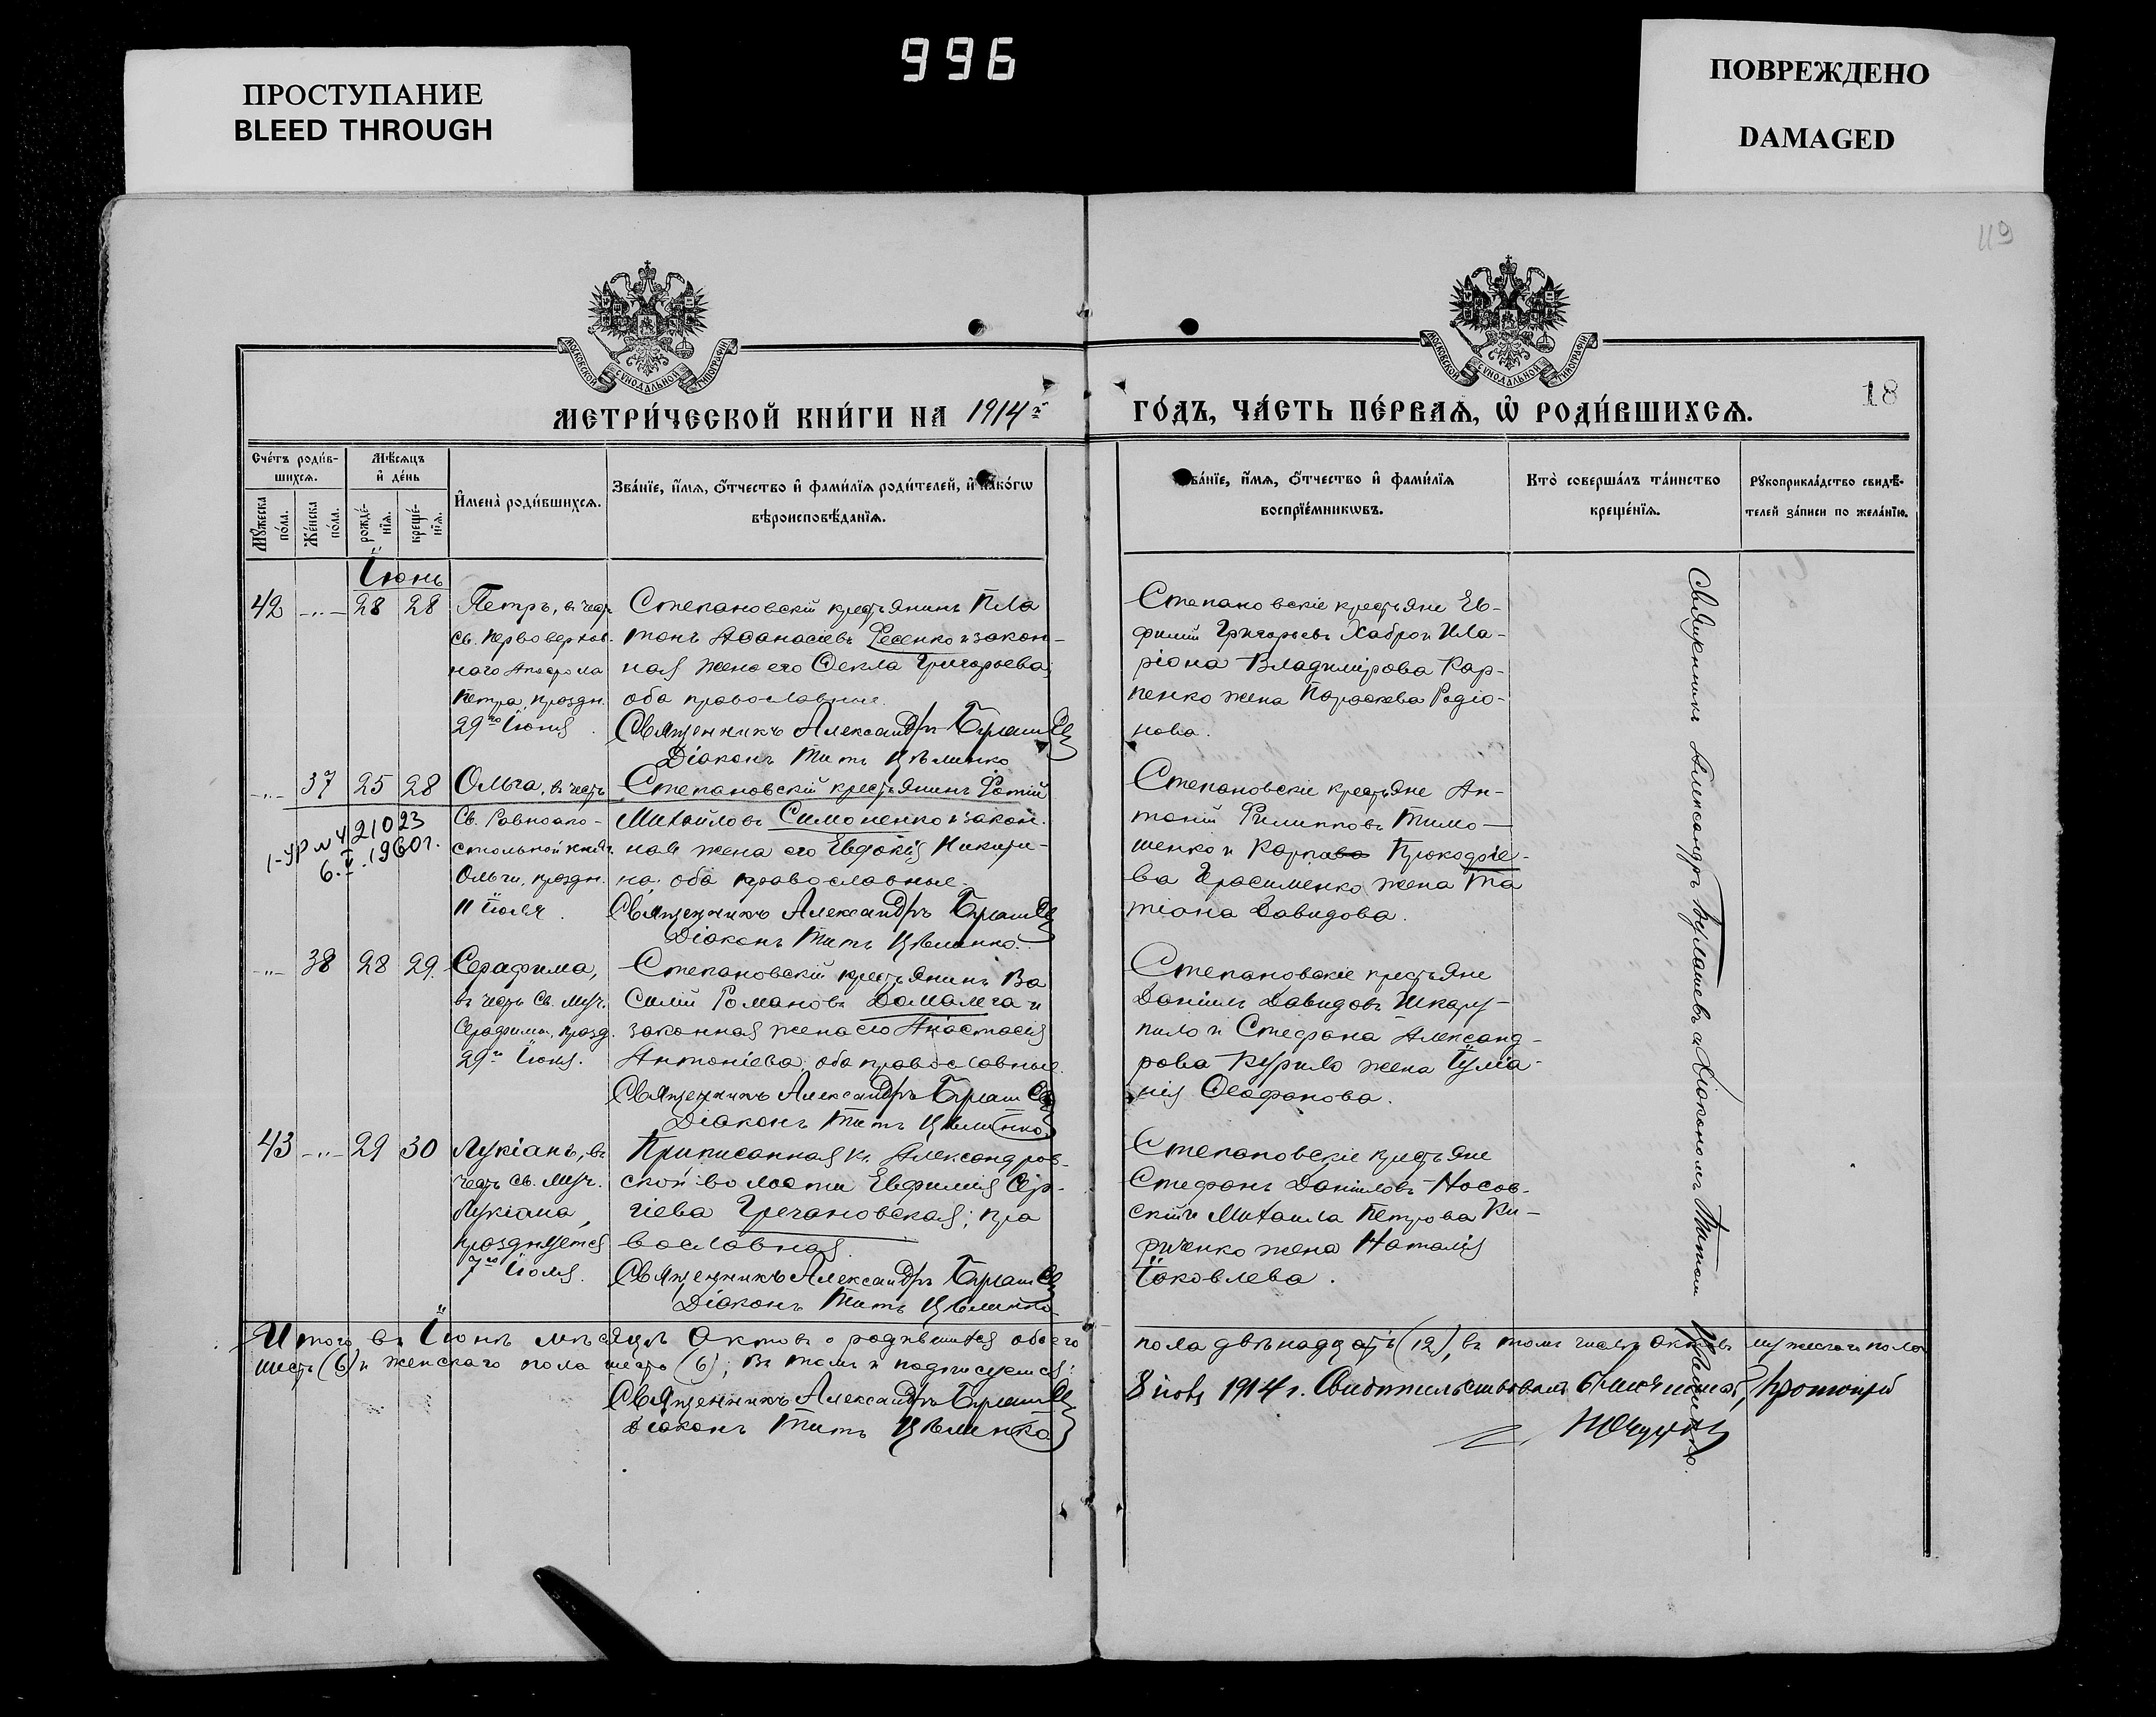 996
ПРОСТУПАНИЕ
BLEED THROUGH
ПОВРЕЖДЕНО
DAMAGED
119
18
МОСКОВСКОЙ СѴНОДАЛЬНОЙ ТИПОГРАФІИ
МОСКОВСКОЙ СѴНОДАЛЬНОЙ ТИПОГРАФІИ
МЕТРИ́ЧЕСКОЙ КНИ́ГИ НА 1914 г.
ГО́ДЪ, ЧА́СТЬ ПЕ́РВАѦ, Ѡ҆ РОДИ́ВШИХСѦ.
Сче́тъ роди́в-
шихсѧ.
Мꙋ́жеска
по́ла.
Же́нска
по́ла.
Мѣ́сѧцъ
и҆ де́нь
рожде́-
нїѧ.
креще́-
нїѧ.
И҆мена̀ роди́вшихсѧ.
Зва́нїе, и҆́мѧ, ѻ҆́тчество и҆ фами́лїѧ роди́телей, и҆ како́гѡ
вѣроисповѣ́данїѧ.
Зва́нїе, и҆́мѧ, ѻ҆́тчество и҆ фами́лїѧ
воспрїе́мникѡвъ.
Кто̀ соверша́лъ та́инство
креще́нїѧ.
Рꙋкоприкла́дство свидѣ́-
телей за́писи по жела́нїю.
Іюнь
42 -„- 28 28
Петръ, въ честь
Св. Первоверхов-
наго Апостола
Петра, праздн.
29го Іюня.
Степановскій крестьянинъ Пла
тонъ Аѳанасіевъ Фесенко и закон-
ная жена его Ѳекла Григорьева,
оба православные.
Священникъ Александръ
Діаконъ Титъ Цѣлинко
Степановскіе крестьяне Ев-
фимій Григорьевъ Хабро и Ила-
ріона Владимірова Кар-
пенко жена Параскева Родіо-
нова.
-„- 37 25 28
1-УР №421023
6.I.1960г.
Ольга, въ честь
Св. Равноапо-
стольной княг.
Ольги, праздн.
11 Іюля.
Степановскій крестьянинъ Фотій
Михайловъ Симоненко и закон.
ная жена его Евдокія Никити-
на, оба православные.
Священникъ Александръ
Діаконъ Титъ Цѣлинко.
Степановскіе крестьяне Ан-
тоній Филипповъ Тимо-
шенко и Карпа Прокофіе-
ва Герасименко жена Та
тіана Давидова.
-„- 38 28 29
Серафима,
въ честь Св. Муч.
Серафимы, празд.
29го Іюня.
Степановскій крестьянинъ Ва
силій Романовъ Домалега и
законная жена его Анастасія
Антоніева, оба православные.
Священникъ Александръ
Діаконъ Титъ Цѣлинко
Степановскіе крестьяне
Даніилъ Давидовъ Шкару-
пило и Стефана Александ-
рова Курило жена Іуліа-
нія Ѳеофанова.
43 -„- 29 30
Лукіанъ, въ
честь Св. Муч.
Лукіана,
празднуется
7го Іюля.
Приписанная къ Александров-
ской волости Евфимія Сер-
гіева Гречановская; пра
вославная.
Священникъ Александръ
Діаконъ Титъ Цѣлинко
Степановскіе крестьяне
Стефанъ Даніиловъ Носов-
скій и Михаила Петрова Ки-
риченко жена Наталія
Іаковлева.
Священникъ Александръ и Діакономъ Титомъ Цѣлинко.
Итого въ Іюнѣ мѣсяцѣ Актовъ о родившихся обоего пола двѣнадцать (12), въ томъ числѣ Актовъ мужескаго пола
шесть (6) и женскаго пола шесть (6); въ томъ и подписуемся:
Священникъ Александръ
Діаконъ Титъ Цѣлинко
8 1914 г. Свидѣтельствовалъ Благочинный, Протоіерей